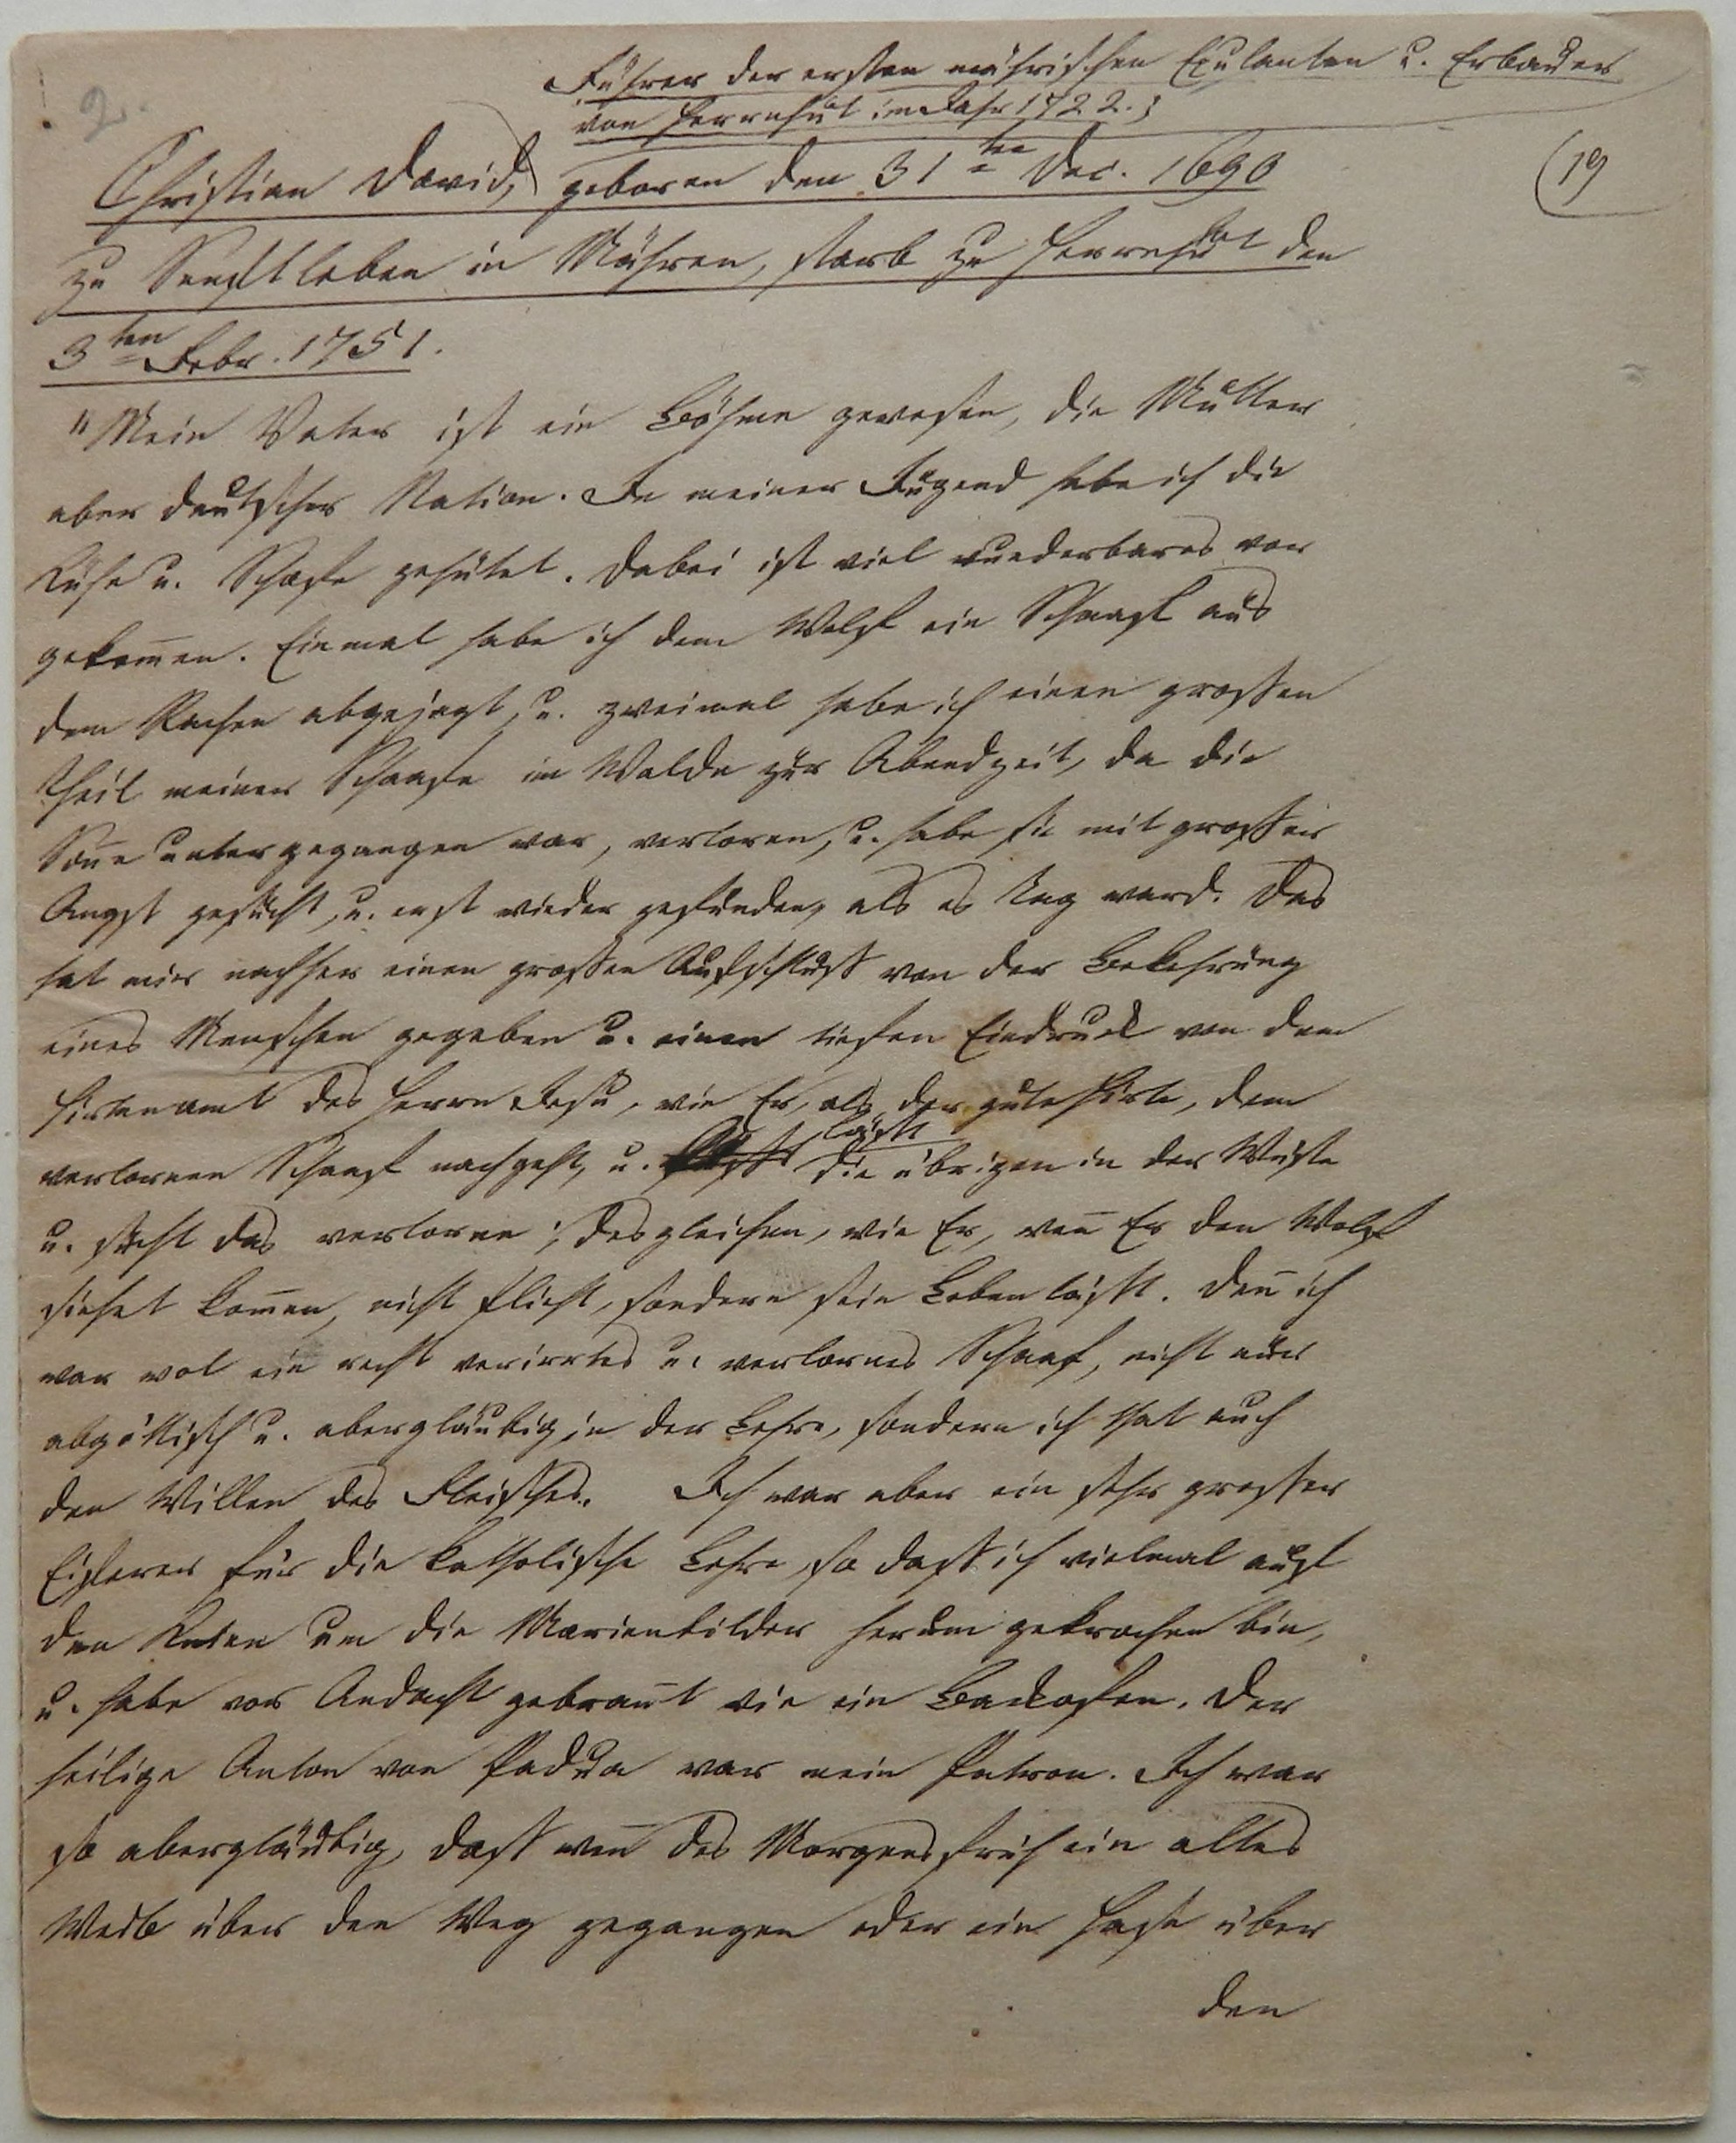 2.
Führer der ersten mährischen Exulanten u. Erbauer
von Herrnhut im Jahr 1722.}
(19
Christian David, geboren den 31ten Dec. 1690
zu Senftleben in Mähren, starb zu Herrnhut den
3ten Febr. 1751.
"Mein Vater ist ein Böhme gewesen, die Mutter
aber deutscher Nation. In meiner Jugend habe ich die
Kühe u. Schafe gehütet. Dabei ist viel wunderbares vor
gekom̅en. Einmal habe ich dem Wolf ein Schaaf aus
dem Rachen abgejagt, u. zweimal habe ich einen grossen
Theil meiner Schaafe im Walde zur Abendzeit, da die
Son̅e untergegangen war, verloren, u. habe sie mit grosser
Angst gesucht, u. erst wieder gefunden, als es Tag ward. Das
hat mir nachher einen grossen Aufschluss von der Bekehrung
eines Menschen gegeben u. einen tiefen Eindruck von dem
Hirtenamt des Herrn Jesu, wie Er, als der gute Hirte, dem
verlornen Schaaf nachgeht, u. lässt die übrigen in der Wüste
u. sucht das verlorne; desgleichen, wie Er, wen̅ Er den Wolf
siehet kom̅en, nicht flieht, sondern sein Leben lässt. Den̅ ich
war wol ein recht verirrtes u. verlornes Schaaf, nicht nur
abgöttisch u. abergläubig in der Lehre, sondern ich that auch
den Willen des Fleisches. Ich war aber ein sehr grosser
Eiferer für die katholische Lehre, so dass ich vielmal auf
den Knien um die Marienbilder herum gekrochen bin,
u. habe vor Andacht gebran̅t wie ein Backofen. Der
heilige Anton von Padua war mein Patron. Ich war
so abergläubig, dass wen̅ des Morgens früh ein altes
Weib über den Weg gegangen oder ein Hase über
den